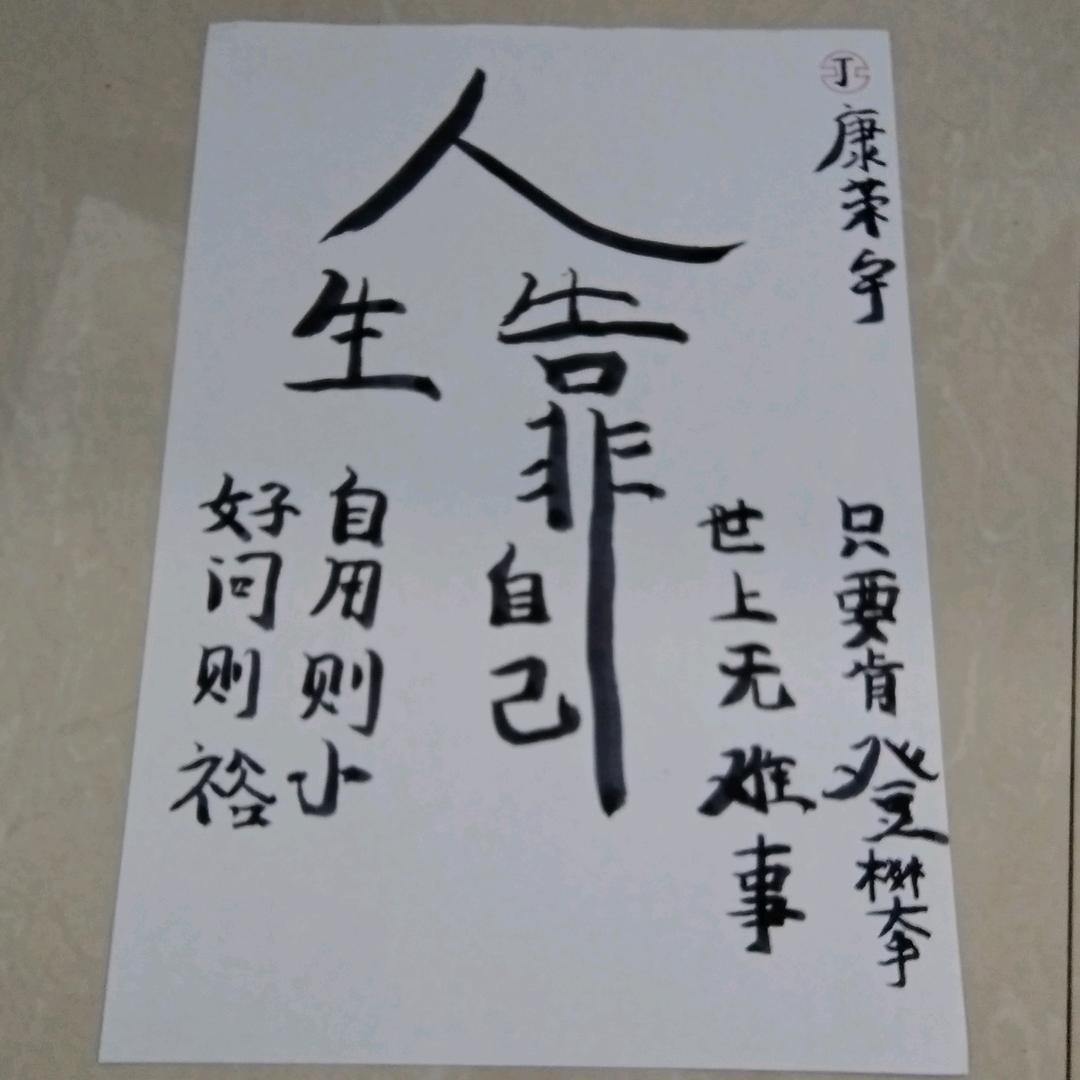 丁
康荣宇
人
生
靠
自己
世上无难事
只要肯登攀
好问则裕
自用则小